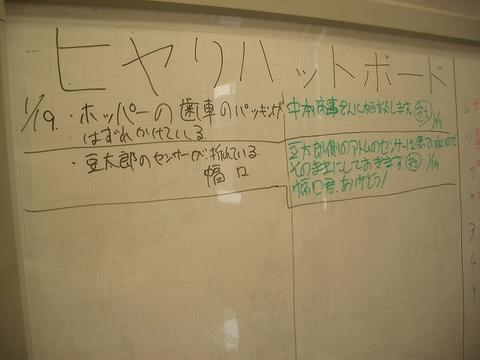 ヒヤリハットボード
1/19.・ホッパーの歯車のパッキング
はずれかけている.
・豆太郎のセンサーが折れている.
幅口
中本商事さんに相談します。
1/19
豆太郎側のアトムのセンサーは使っていないので
そのままにしておきます。
1/19
幅口君、ありがとう!